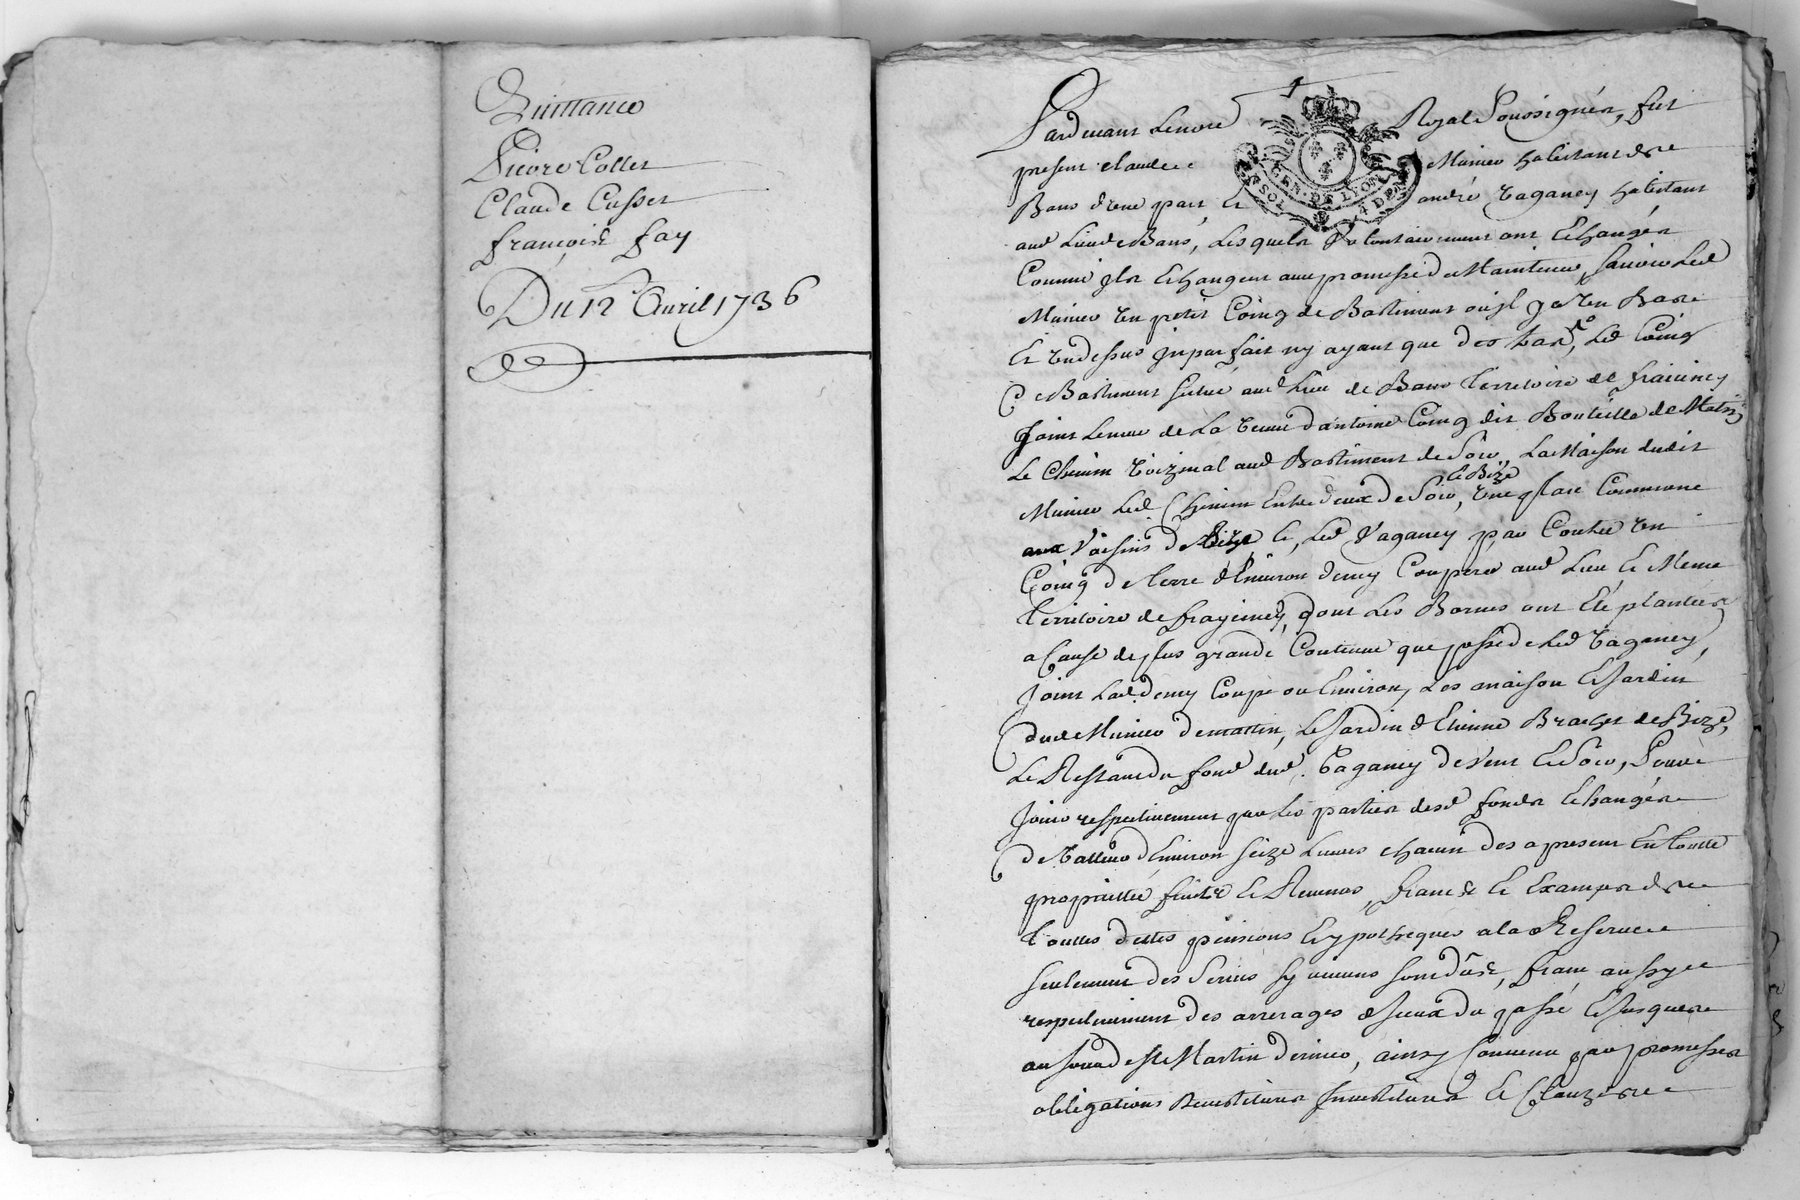 Quittance
Pierre Collet
Claude Cusset
françoise fay
Du 12e Avril 1736
1
Pardevant Lenore Royal Soussignéz, fut
present claude Munier habitant de
Bans d'une part, Et andré Vaganey habitant
aud Lieu de Bans, Lesquels Volontairement ont Echangéz
Comme jls Echangent avec promesse de Maintenir, Sauoir Led
Munier Un petit Coing de Bastiment ou jl y a Un Bas
Et Un dessus jmparfait ny ayant que des, Led Coing
de Bastiment situé aud Lieu de Bans Territoire de fraiciney
Joint de La Veuue d'antoine Coing dit Bouteille de Matin
Le Chemin Voizinal aud Bastiment de Soir, La Maison dudit
Munier Led Chemin Entre deux de Soir, Une place Commune
de Bize
aux Voisins de Bize Et, Led Vaganey par Contre Un
Coing de Terre d'Enuiron demy Couperée aud Lieu Et Meme
Territoire de frayciney, dont Les Bornes ont Eté plantées
a Cause de plus grande Contenue que possede Led Vaganey,
Joint Lad demy Coupe ou Enuiron, Les maison Et Jardin
dud Munier de mattin, Le Jardin d'Etienne Brachet de Bize,
Le Restant du fond dud Vaganey de Vent Et Soir, Pour en
Jouir respectiuement par Les parties desd fonds Echangéz
de Valleur d'Enuiron seize Liures chacun des a present En toutte
propriettée fruits Et Reuenus, francs Et Exampts de
Touttes dettes pensions Et ypotheques a la Reserue
seulement des Seruis sy aucuns sont dus, franc aussy
respectiuement des arrerages d'jceux du passé Et Jusques
au Jour de St Martin dernier, ainsy Conuenu par promesses
obligations deuestitures Jnuestitures Et Clauzes
GEN. DE LYON
4 DEN